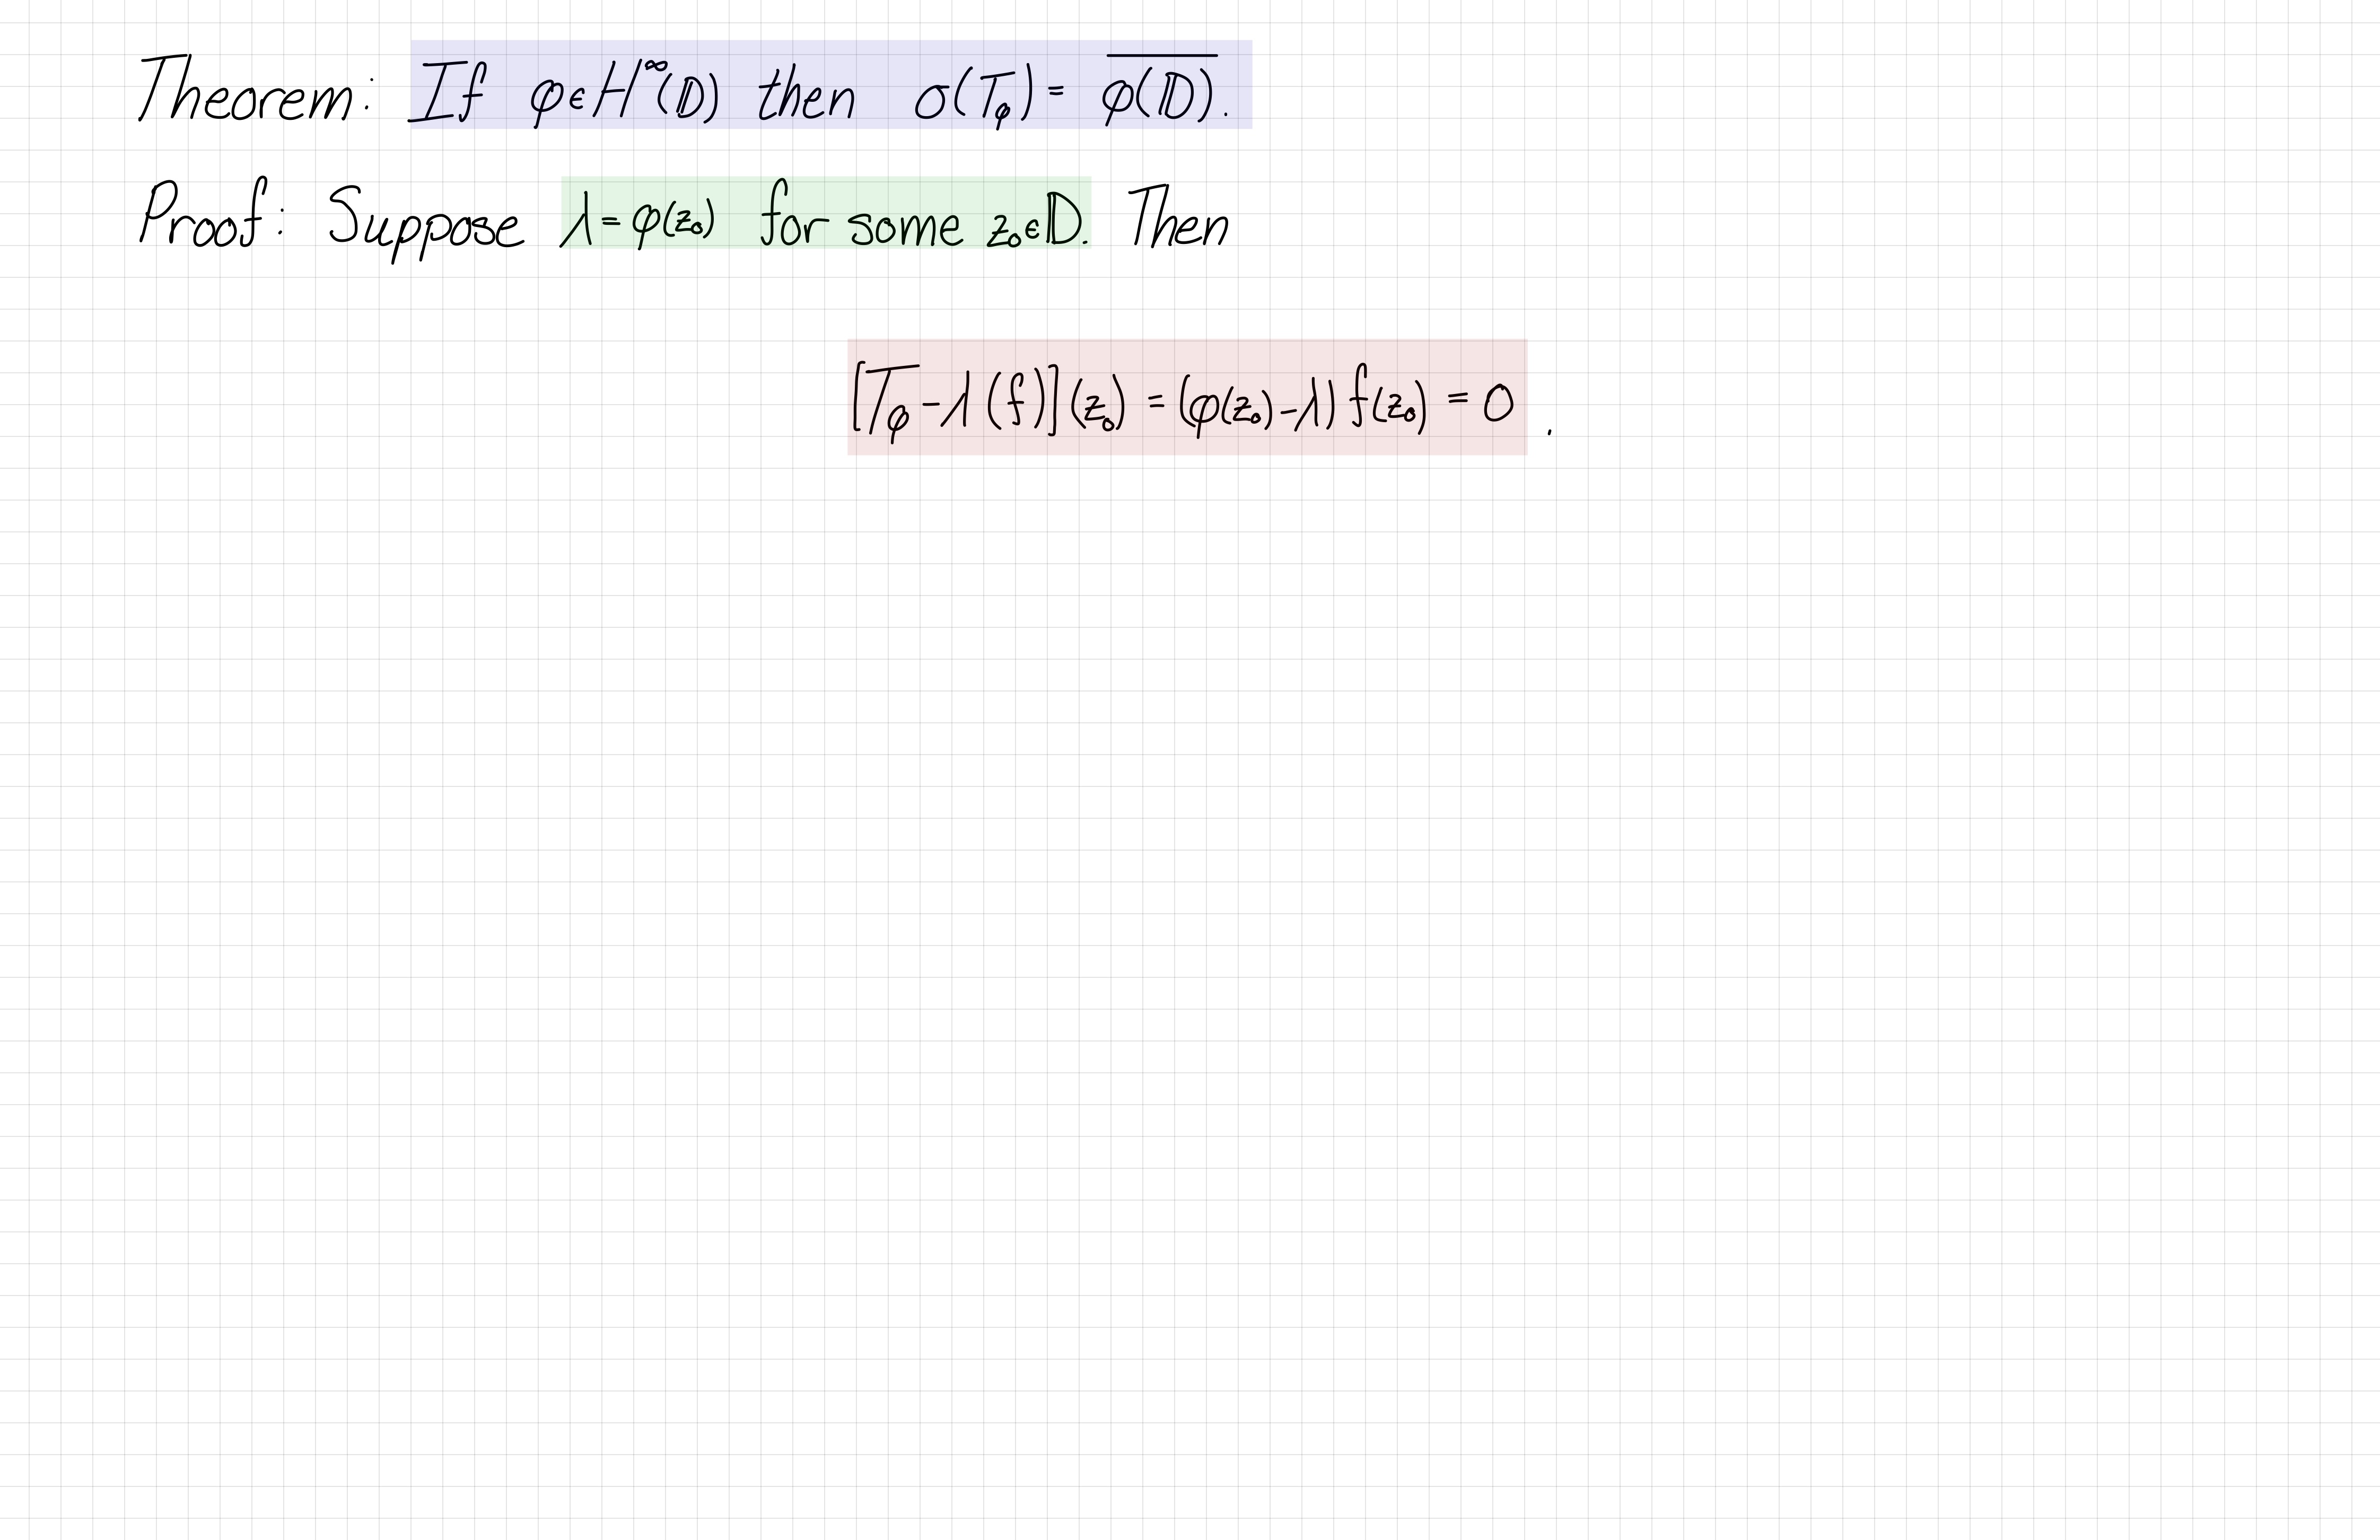 Theorem: If φ∈H^∞(𝔻) then σ(T_φ) = \overline{φ(𝔻)}.
Proof: Suppose λ=φ(z₀) for some z₀∈𝔻. Then
[T_{φ-λ}(f)](z₀) = (φ(z₀)-λ) f(z₀) = 0 .